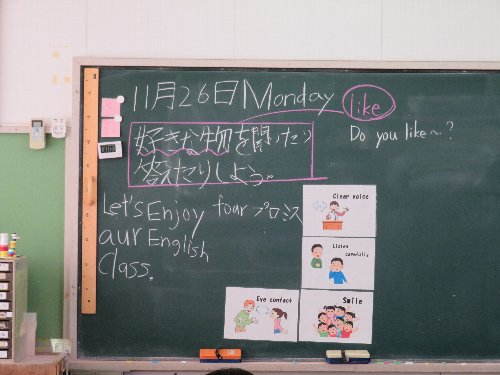 11月26日Monday
like
Do you like~?
好きな物を聞いたり
答えたりしよう。
Let's Enjoy
aur English
Class.
four プロミス
Clear voice
Listen
carefully
Eye contact
Smile